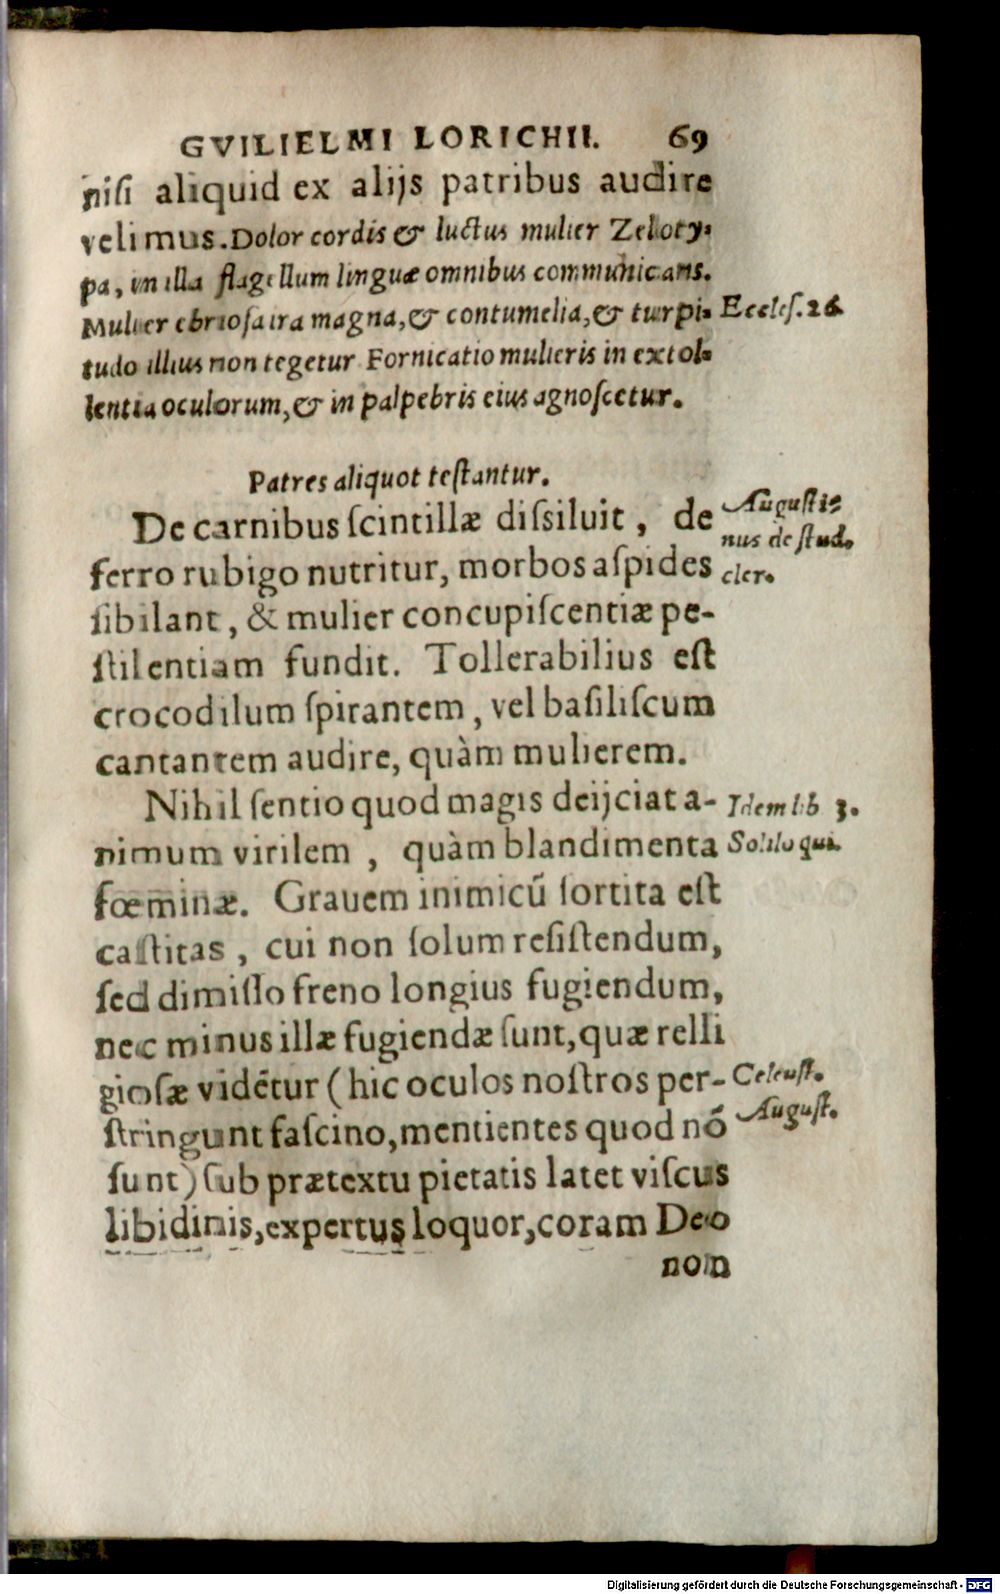 GVILIELMI LORICHII. 69
nisi aliquid ex alijs patribus audire
velimus. Dolor cordis & luctus mulier Zeloty-
pa, in illa flagellum linguæ omnibus communicans.
Mulier ebriosa ira magna, & contumelia, & turpi-
Eccles. 26.
tudo illius non tegetur Fornicatio mulieris in extol-
lentia oculorum, & in palpebris eius agnoscetur.
Patres aliquot testantur.
De carnibus scintillæ dissiluit, de
Augusti-
nus de stud.
cler.
ferro rubigo nutritur, morbos aspides
sibilant, & mulier concupiscentiæ pe-
stilentiam fundit. Tollerabilius est
crocodilum spirantem, vel basiliscum
cantantem audire, quàm mulierem.
Nihil sentio quod magis deijciat a-
Idem lib 3.
Soliloqui.
nimum virilem, quàm blandimenta
fœminæ. Grauem inimicū sortita est
castitas, cui non solum resistendum,
sed dimisso freno longius fugiendum,
nec minus illæ fugiendæ sunt, quæ relli
giosæ vidētur (hic oculos nostros per-
Celeust.
August.
stringunt fascino, mentientes quod nō
sunt) sub prætextu pietatis latet viscus
libidinis, expertus loquor, coram Deo
non
Digitalisierung gefördert durch die Deutsche Forschungsgemeinschaft - DFG